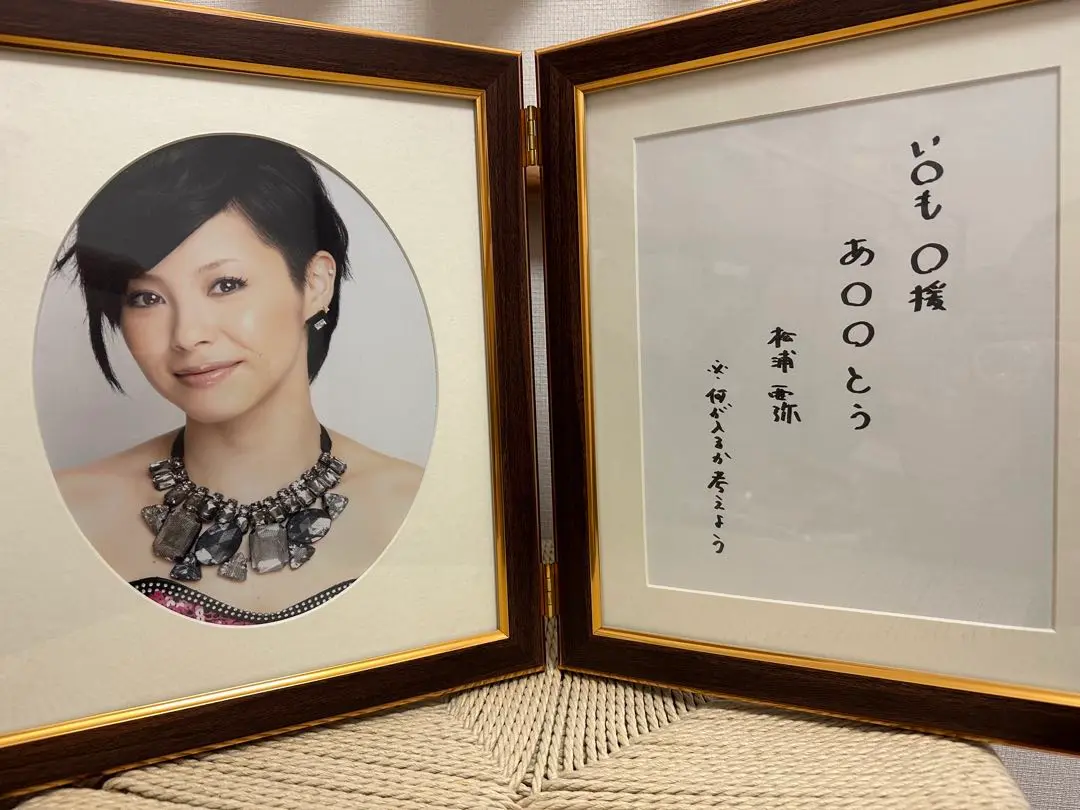 い〇も 〇援
あ〇〇とう
松浦 亜弥
※何が入るか考えよう